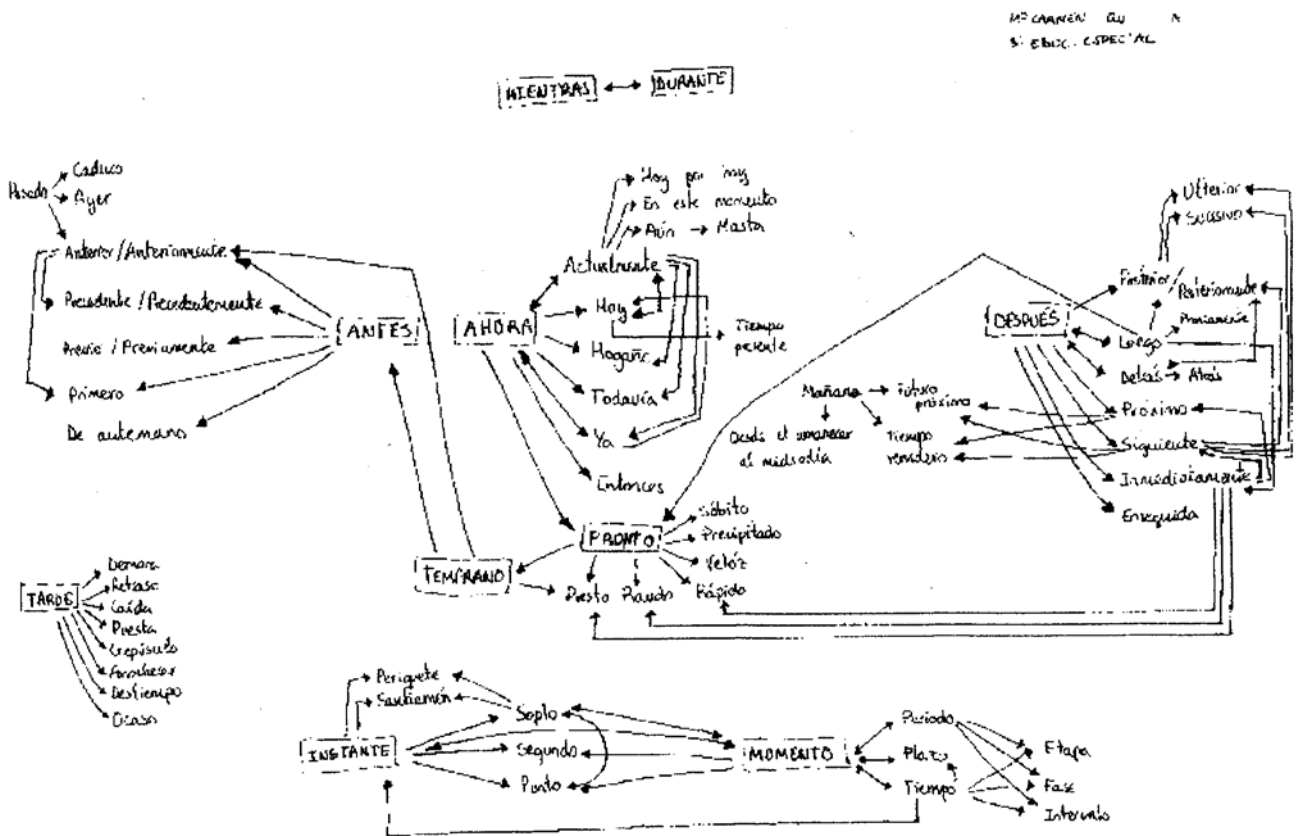 Mª CARMEN
3º EDUC. ESPECIAL
MIENTRAS DURANTE
Pasado
Caduco
Ayer
Anterior/Anteriormente
Precedente/Precedentemente
Previo/Previamente
Primero
De antemano
ANTES
AHORA
Hoy por hoy
En este momento
Aún Hasta
Actualmente
Hoy
Tiempo
Hogaño
Todavía
Ya
Entonces
DESPUÉS
Ulterior
Sucesivo
Posterior/
Posteriormente
Luego
Detrás Atrás
Próximo
Siguiente
Inmediatamente
Enseguida
Mañana
Futuro
próximo
Desde el amanecer
al mediodía
Tiempo
venidero
PRONTO
Súbito
Precipitado
Velóz
Rápido
Raudo
Presto
TEMPRANO
TARDE
Demora
Retraso
Caída
Puesta
Crepúsculo
Anochecer
Destiempo
Ocaso
INSTANTE
Periquete
Santiamén
Soplo
Segundo
Punto
MOMENTO
Periodo
Plazo
Tiempo
Etapa
Fase
Intervalo